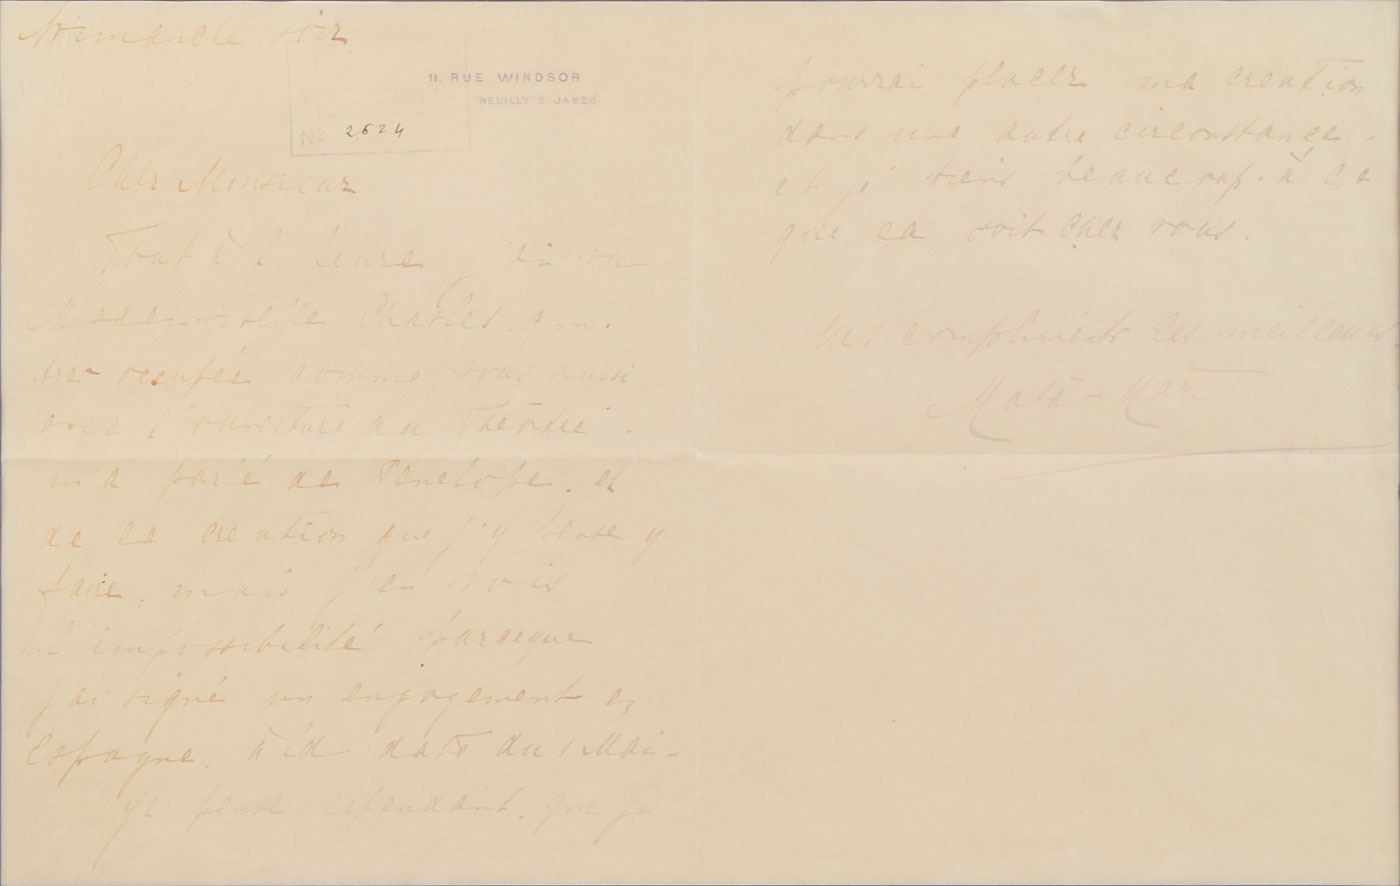 Dimanche soir
11, RUE WINDSOR
NEUILLY St JAMES
No 2624
Cher Monsieur
Tout à l'heure j'ai vu
Mademoiselle Charles. qui.
très occupée comme vous aussi
avec l'ouverture du Théâtre -
m'a parlé de Penelope. et
de la creation que j'y pense y
faire, mais j'en vois
l'impossibilité parceque
j'ai signé un engagement en
Espagne. à la date du 1 Mai -
Je pense cependant. que je
pourrai placer ma creation
dans une autre circonstance -
et je tiens beaucoup. à ce
que ça soit chez vous.
Mes compliments les meilleurs
Mata-Hari